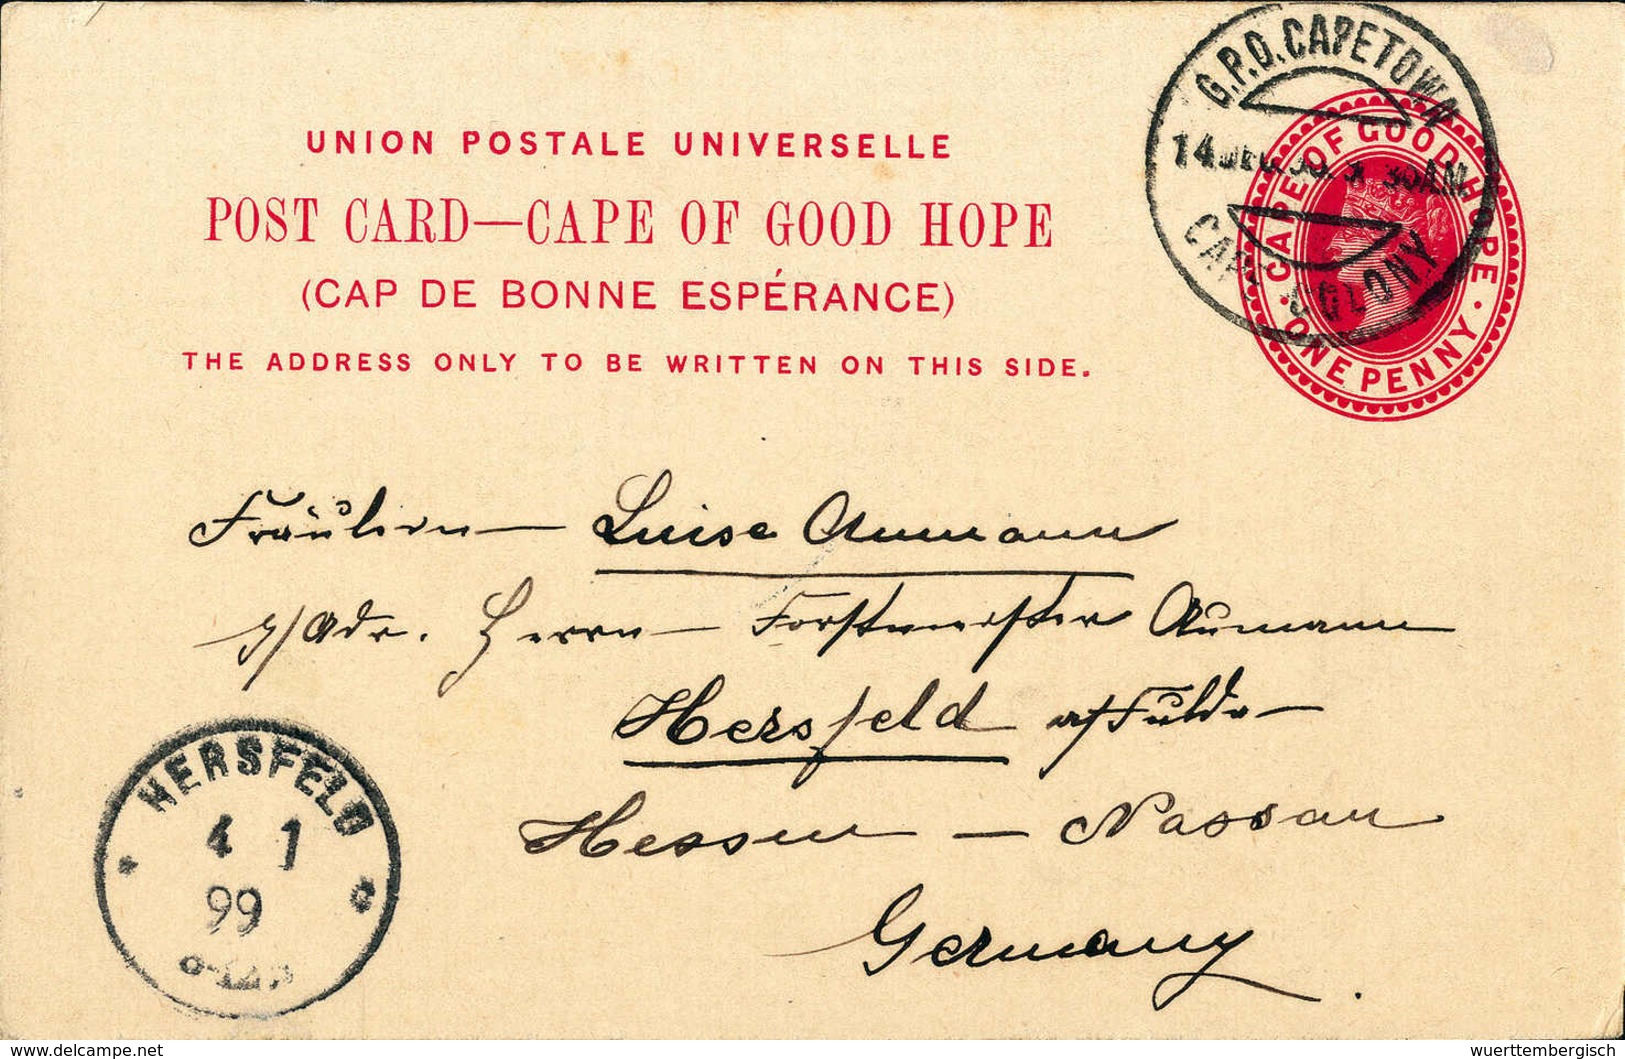 G.P.O. CAPETOWN
14
A.M.
COLONY
CAPE OF GOOD HOPE
ONE PENNY
UNION POSTALE UNIVERSELLE
POST CARD—CAPE OF GOOD HOPE
(CAP DE BONNE ESPÉRANCE)
THE ADDRESS ONLY TO BE WRITTEN ON THIS SIDE.
Fräulein Luise Aumann
p/Adr. Herrn Forstmeister Aumann
Hersfeld a/Fulda
Hessen – Nassau
Germany
HERSFELD
4 1
99
delcampe.net
wuerttembergisch